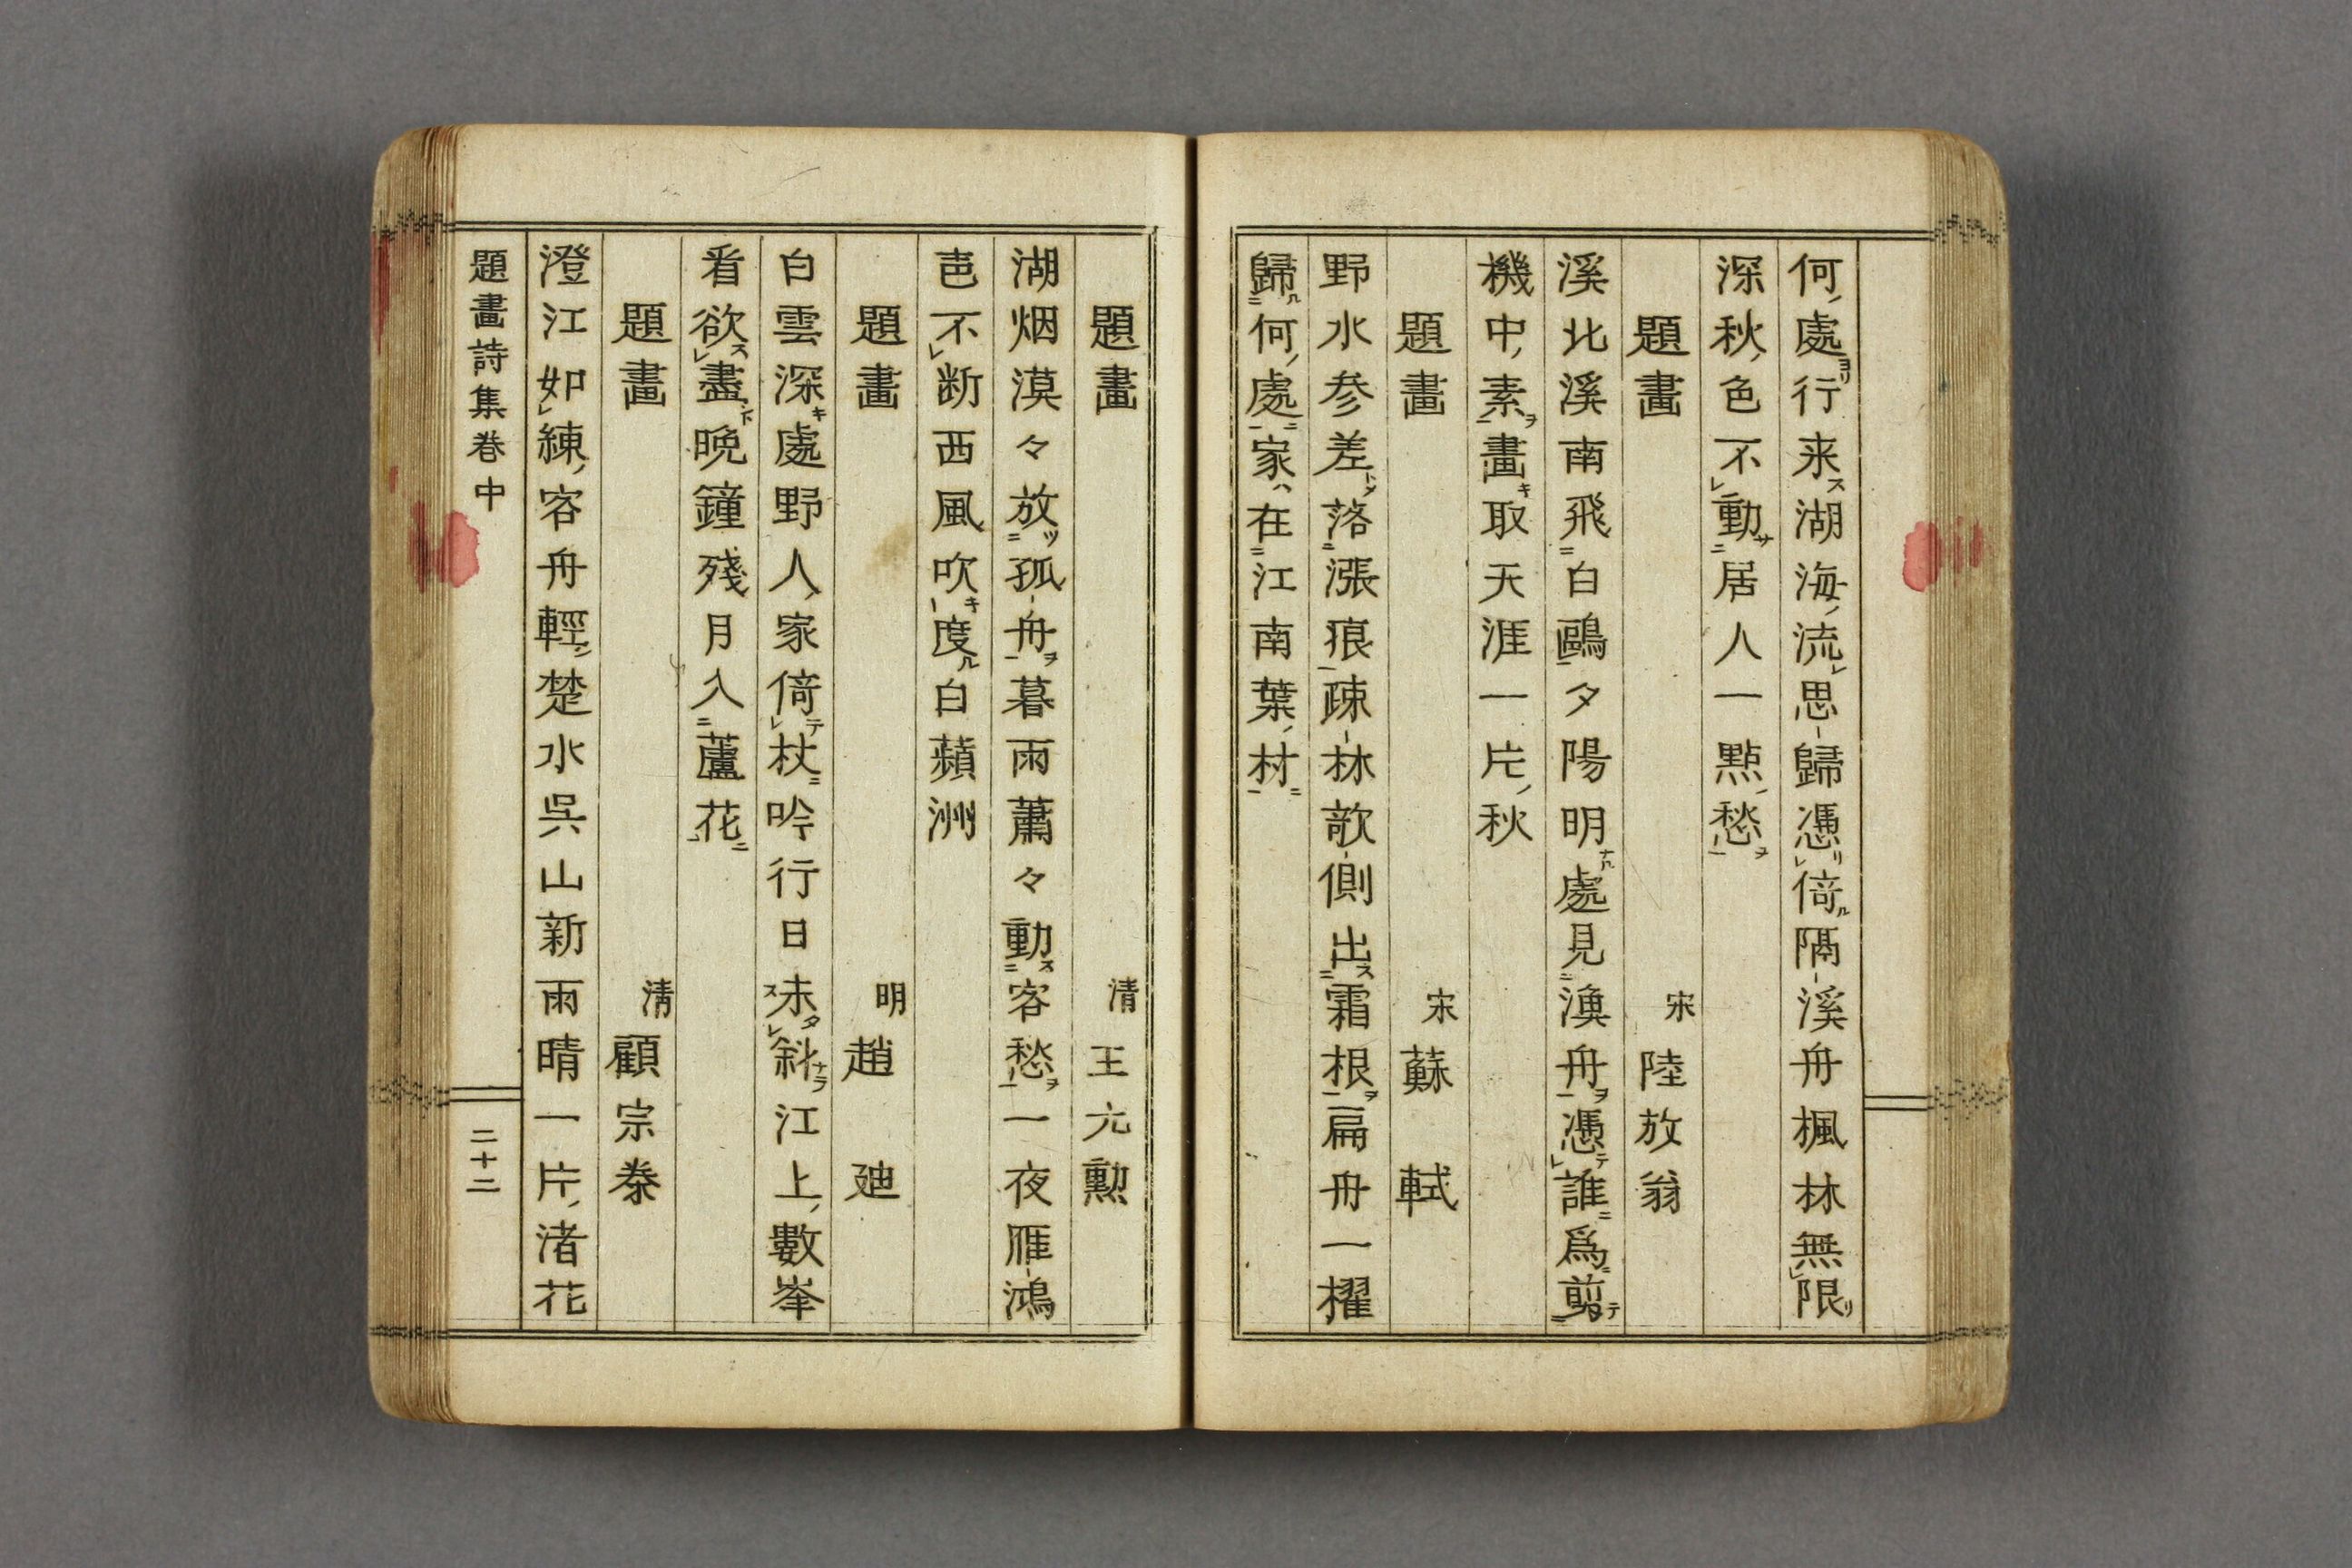 何處行来湖海流思歸憑倚隔溪舟楓林無限
深秋色不動居人一點愁
題畫 宋 陸放翁
溪北溪南飛白鷗夕陽明處見漁舟憑誰爲剪
機中素畫取天涯一片秋
題畫 宋 蘇軾
野水参差落漲痕疎林欹側出霜根扁舟一櫂
歸何處家在江南葉村
題畫 清 王元勲
湖烟漠々放孤舟暮雨蕭々動客愁一夜雁鴻
声不断西風吹度白蘋洲
題畫 明 趙廸
白雲深處野人家倚杖吟行日未斜江上數峯
看欲盡晩鐘殘月入蘆花
題畫 清 顧宗泰
澄江如練客舟輕楚水呉山新雨晴一片渚花
題畫詩集巻中 二十二